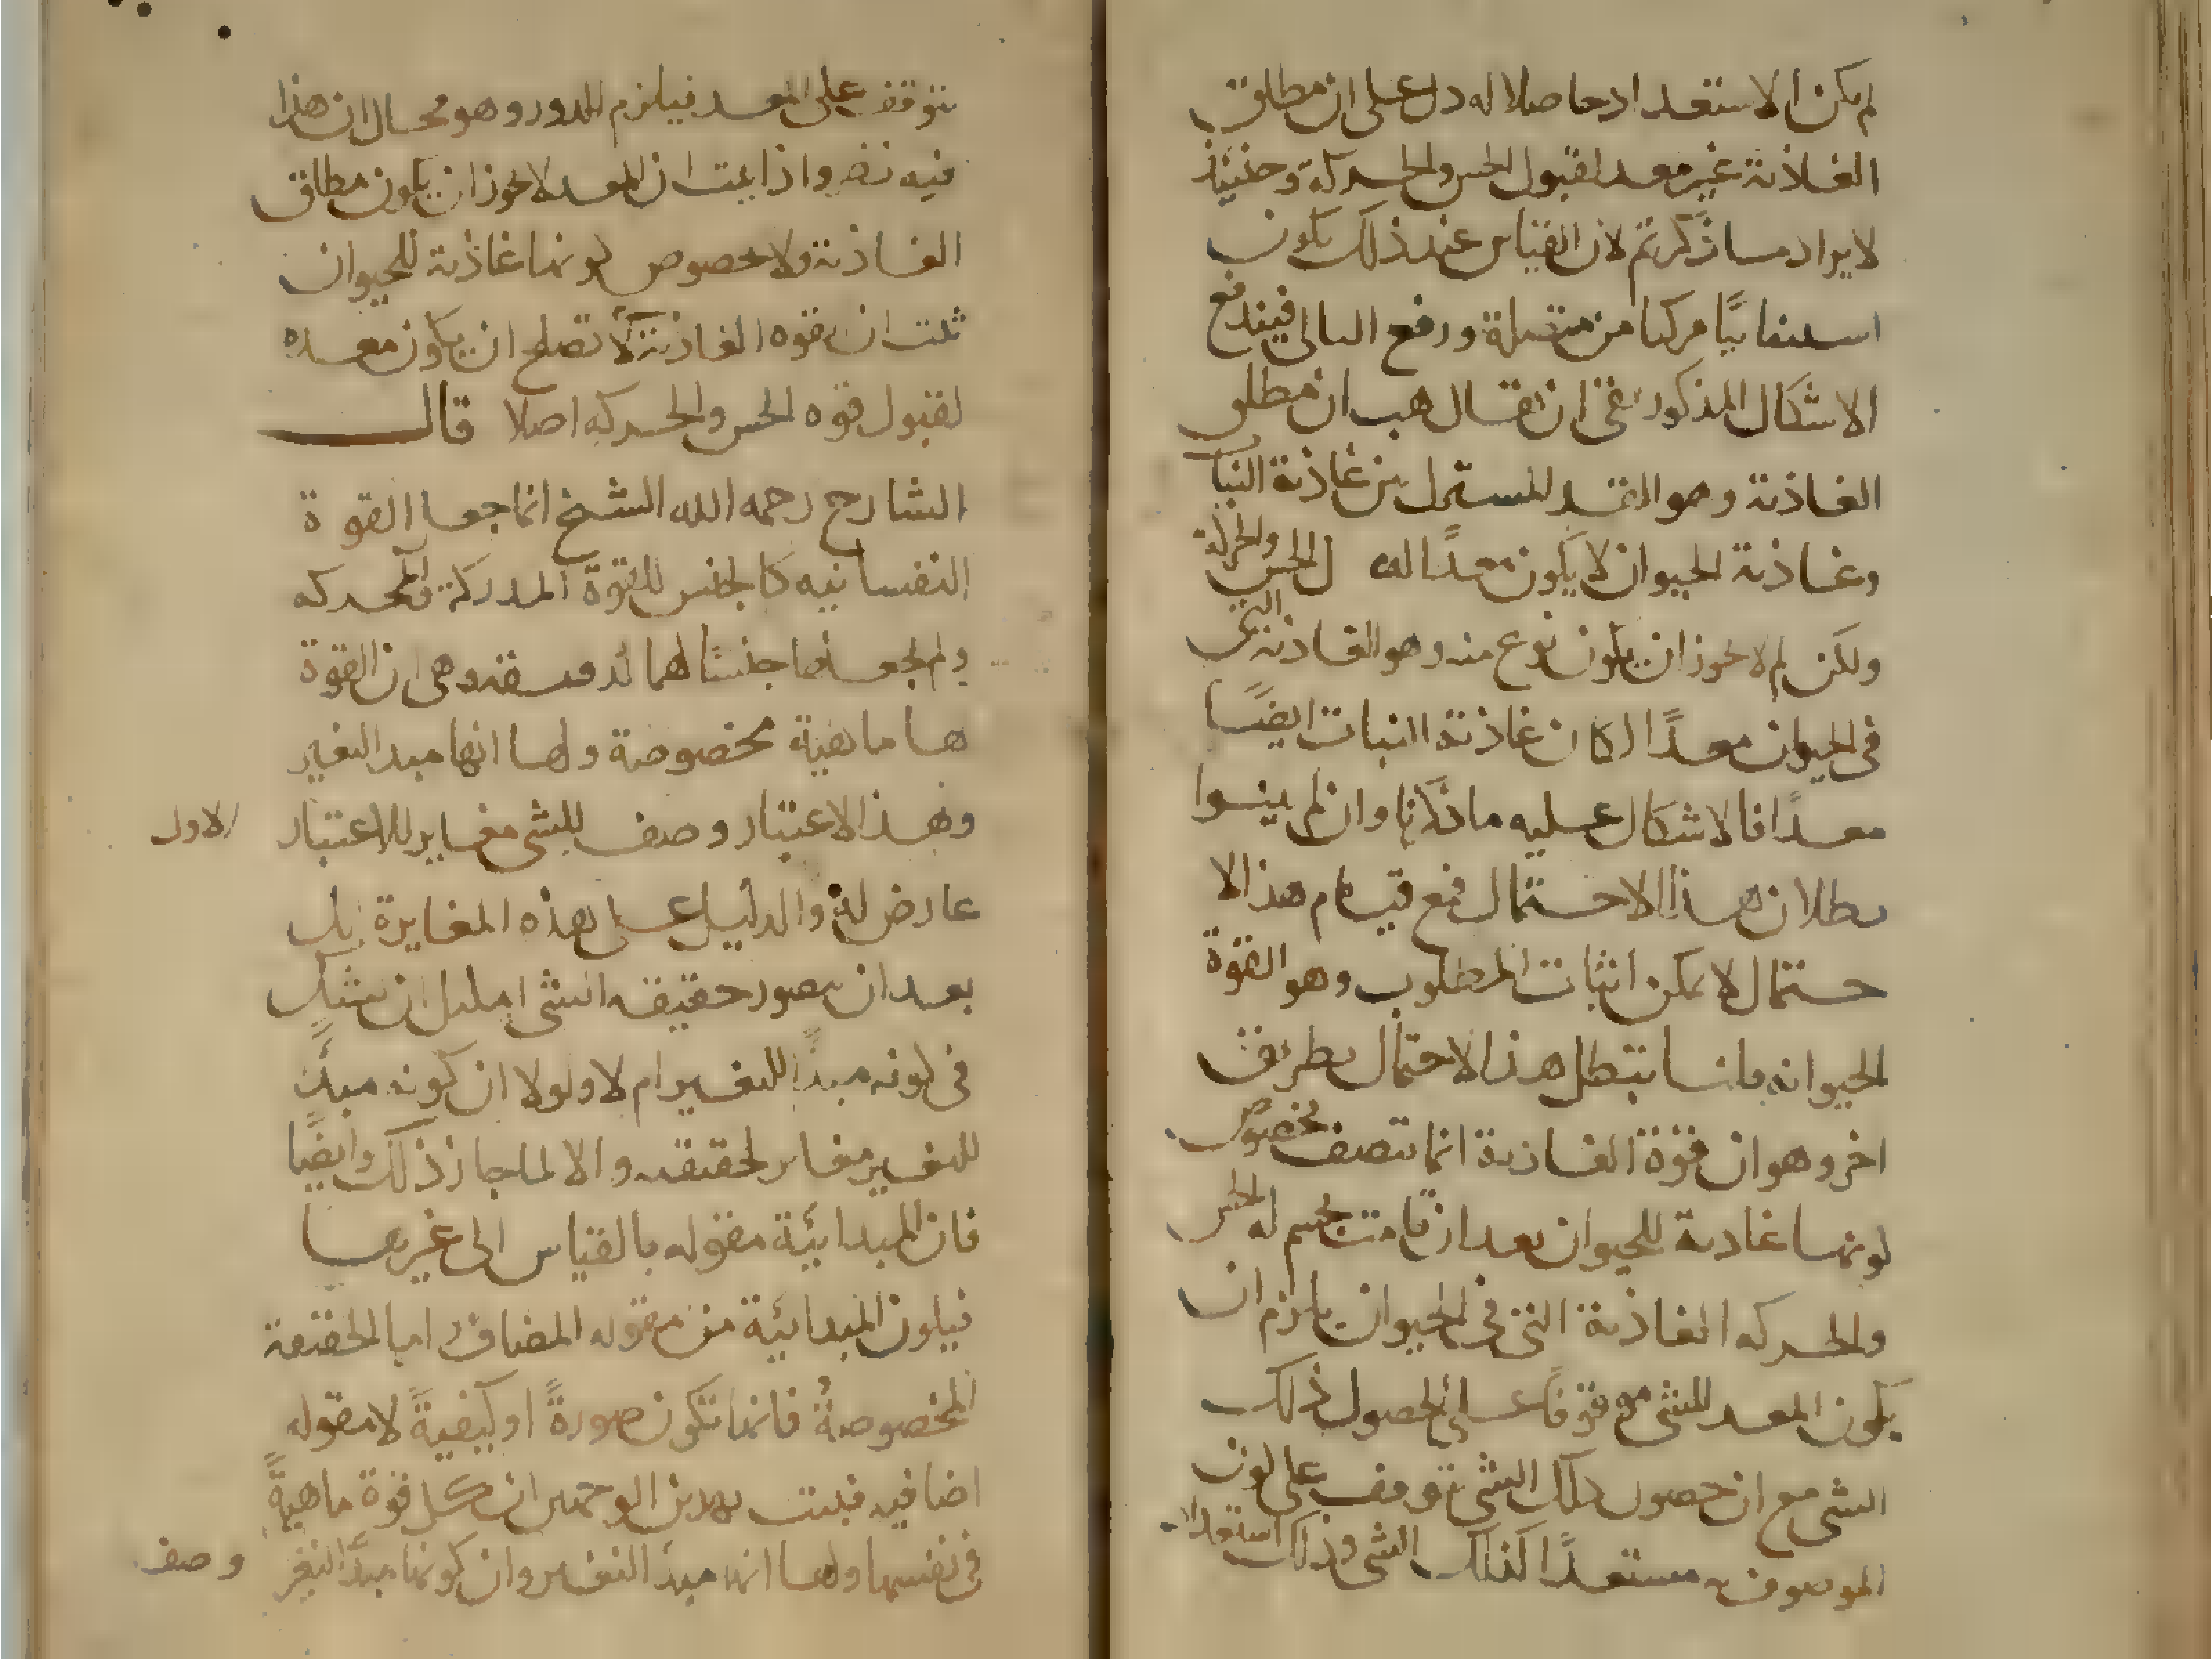 لم يكن الاستعداد حاصلا له دل على ان مطلق
الغاذية غير معد لقبول الحس والحركة وحينئذ
لا يراد ما ذكرتم لان القياس عند ذلك يكون
استثنائيًا مركبا من متصلة ورفع التالى فيندفع
الاشكال المذكور بقى ان يقال هب ان مطلق
الغاذية وهو القدر المشترك بين غاذية النبات
وغاذية الحيوان لا يكون معدًا له ل الحس والحركة
ولكن لم لا يجوز ان يكون نوع منه وهو الغاذية التى
فى الحيوان معدًا لكان غاذية النبات ايضًا
معدًا فالاشكال عليه ما ذكرنا وان لم يبينوا
بطلان هذا الاحتمال فمع قيام هذا الا
حتمال لا يمكن اثبات المطلوب وهو القوة
الحيوانيه بل يبطل هذا الاحتمال بطريق
اخر وهو ان قوة الغاذية انما تتصف بخصوص
كونها غاذية للحيوان بعد ان قامت بجسم له الحس
والحركه الغاذية التى فى الحيوان يلزم ان
يكون المعد للشى موقوفًا على حصول ذلك
الشى مع ان حصول ذلك الشى توقف على كون
الموصوف به مستعدًا لذلك الشى وذلك استعداد
يتوقف على المعد فيلزم الدور وهو محال ان هذا
فيه نظر واذا ثبت ان المعد لا يجوز ان يكون مطلق
الغاذية ولا خصوص كونها غاذية للحيوان
ثبت ان قوه الغاذية لا تصلح ان يكون معده
لقبول قوه الحس والحركه اصلا قال
الشارح رحمه الله الشيخ انما جعل القوة
النفسانيه كالجنس للقوة المدركة والمحركه
ولم يجعلها جنسًا لهما لدقيقة وهى ان القوة
لها ماهية مخصوصة ولها انها مبدا التغير
وهذا الاعتبار وصف للشى مغاير للاعتبار الاول
عارض له والدليل على هذه المغايرة بل
بعد ان يتصور حقيقه الشى ان يشك
فى كونه مبدأً للتغير ام لا ولولا ان كونه مبدأً
للتغير مغاير لحقيقته والا لما جاز ذلك وايضًا
فان المبدائية مقوله بالقياس الى غيرها
فيكون المبدائية من مقوله المضاف اما الحقيقة
المخصوصةُ فانها تكون صورةً او كيفيةً لا مقوله
اضافيه فثبت بهذين الوجهين ان كل قوة ماهيةً
فى نفسها ولها انه مبدأ التغير وان كونها مبدأً التغير وصف